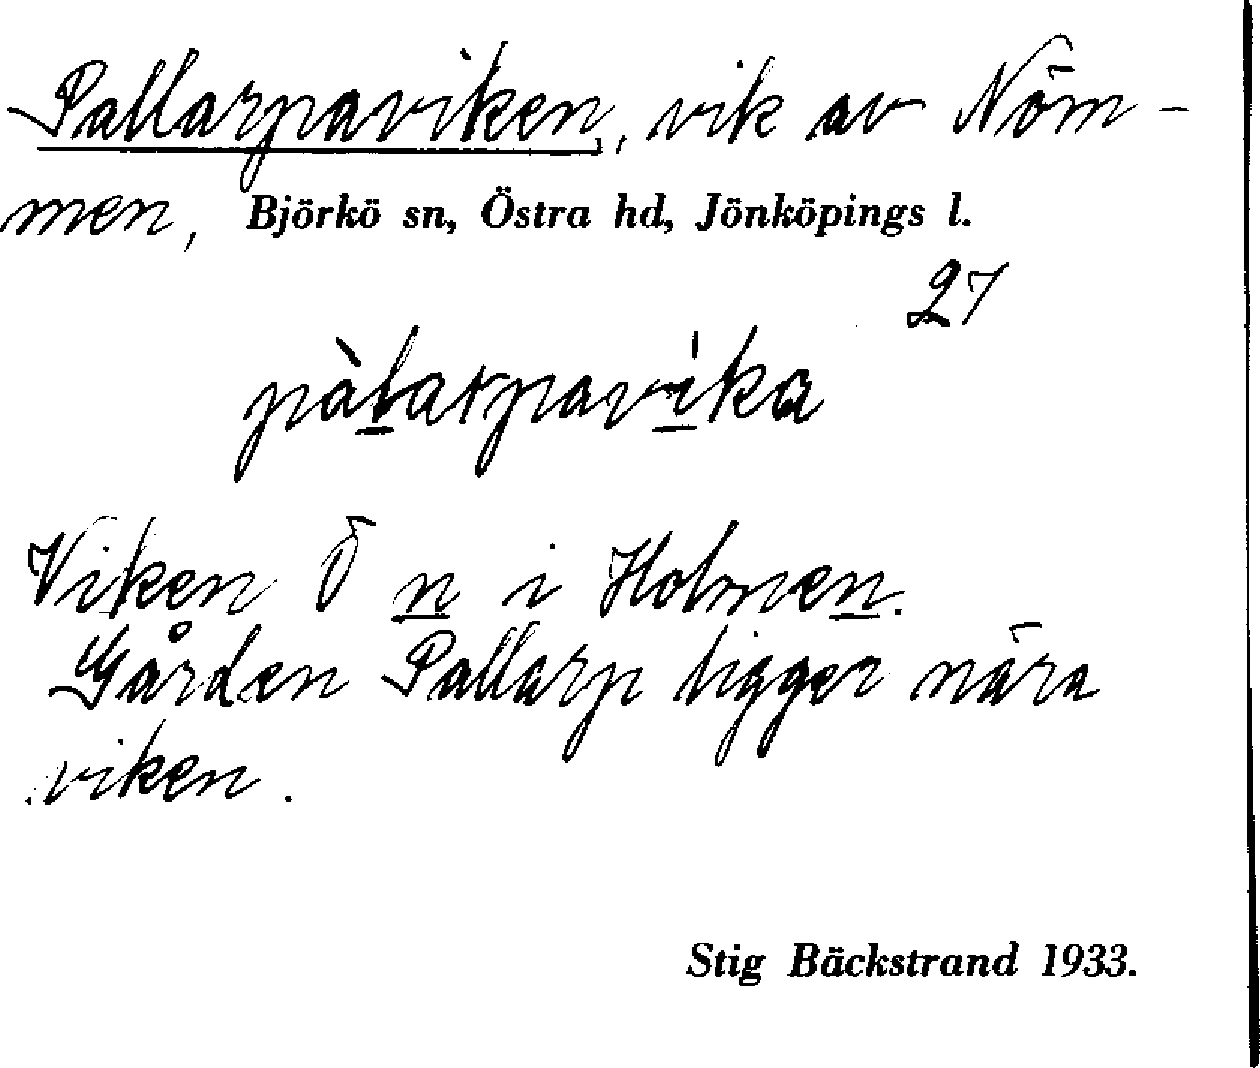 Pallarpaviken, vik av Nöm-
men, Björkö sn, Östra hd, Jönköpings l.
27
pàlarpavika
Viken Ö n i Holmen.
Gården Pallarp ligger nära
viken.
Stig Bäckstrand 1933.